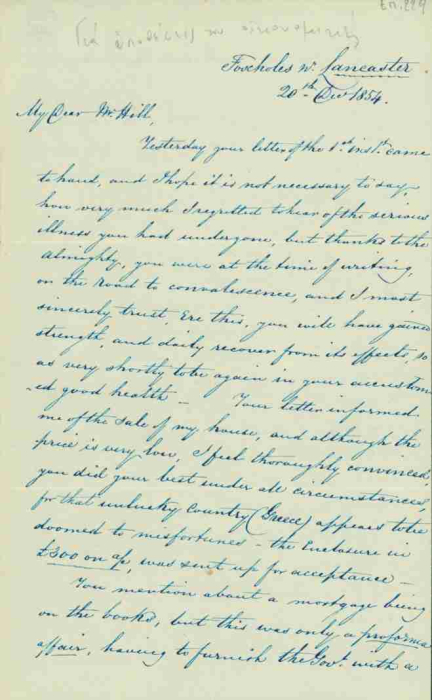 Επ. 229
Για υποθέσεις του
Foxholes nr. Lancaster
20th Decr 1854.
My Dear Mr Hill,
Yesterday your letter of the 1st. inst. came
to hand, and I hope it is not necessary to say,
how very much I regretted to hear of the serious
illness you had undergone, but thanks to the
Almighty, you were at the time of writing,
on the road to convalescence, and I most
sincerely trust, Ere this, you will have gained
strength, and daily recover from its effects, so
as very shortly to be again in your accustom
-ed good health - Your letter informed
me of the sale of my house, and although the
price is very low, I feel thoroughly convinced,
you did your best under all circumstances,
for that unlucky Country (Greece) appears to be
doomed to misfortunes - the Enclosure in
£300 on a/c, was sent up for acceptance -
You mention about a mortgage being
on the books, but this was only a proforma
affair, having to furnish the Govt. with a